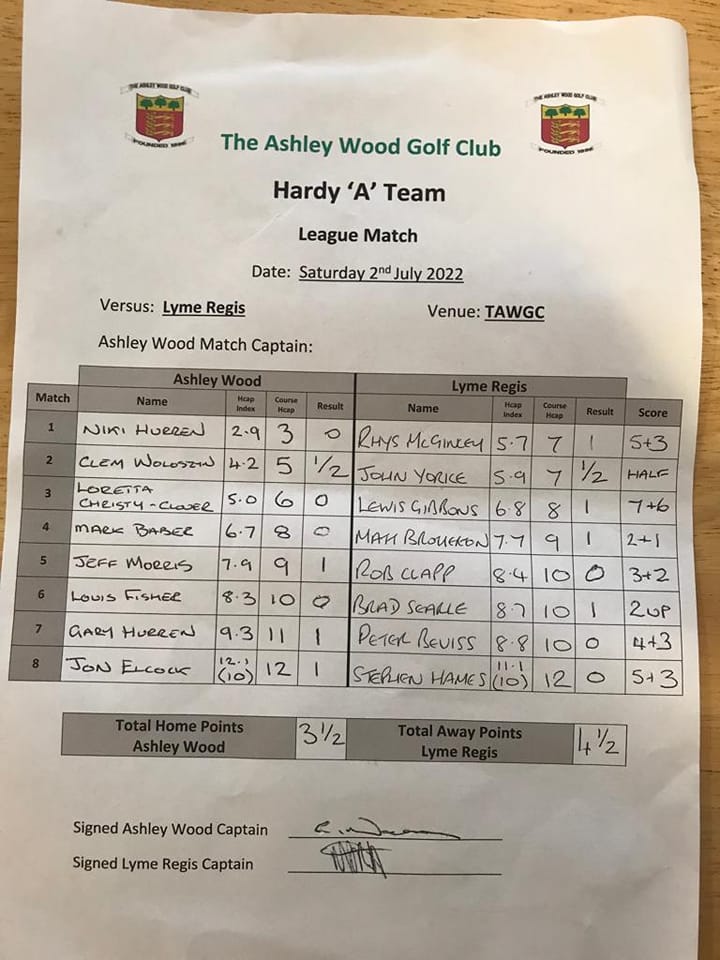 THE ASHLEY WOOD GOLF CLUB
FOUNDED 1896
THE ASHLEY WOOD GOLF CLUB
FOUNDED 1896
The Ashley Wood Golf Club
Hardy ‘A’ Team
League Match
Date: Saturday 2nd July 2022
Versus: Lyme Regis Venue: TAWGC
Ashley Wood Match Captain:
Ashley Wood Lyme Regis
Match Name Hcap Index Course Hcap Result Name Hcap Index Course Hcap Result Score
1 NIKI HURREN 2.9 3 0 RHYS McGINLEY 5.7 7 1 5+3
2 CLEM 4.2 5 1/2 JOHN YORICE 5.9 7 1/2 HALF
3 LORETTA CHRISTY-CLOVER 5.0 6 0 LEWIS GIBBONS 6.8 8 1 7+6
4 MARK BABER 6.7 8 0 MATT BROUGHTON 7.7 9 1 2+1
5 JEFF MORRIS 7.9 9 1 ROB CLAPP 8.4 10 0 3+2
6 LOUIS FISHER 8.3 10 0 BRAD SEARLE 8.7 10 1 2UP
7 GARY HURREN 9.3 11 1 PETER BEVISS 8.8 10 0 4+3
8 JON ELCOCK 12.1 (10) 12 1 STEPHEN HAMES 11.1 (10) 12 0 5+3
Total Home Points Ashley Wood 3 1/2 Total Away Points Lyme Regis 4 1/2
Signed Ashley Wood Captain
Signed Lyme Regis Captain